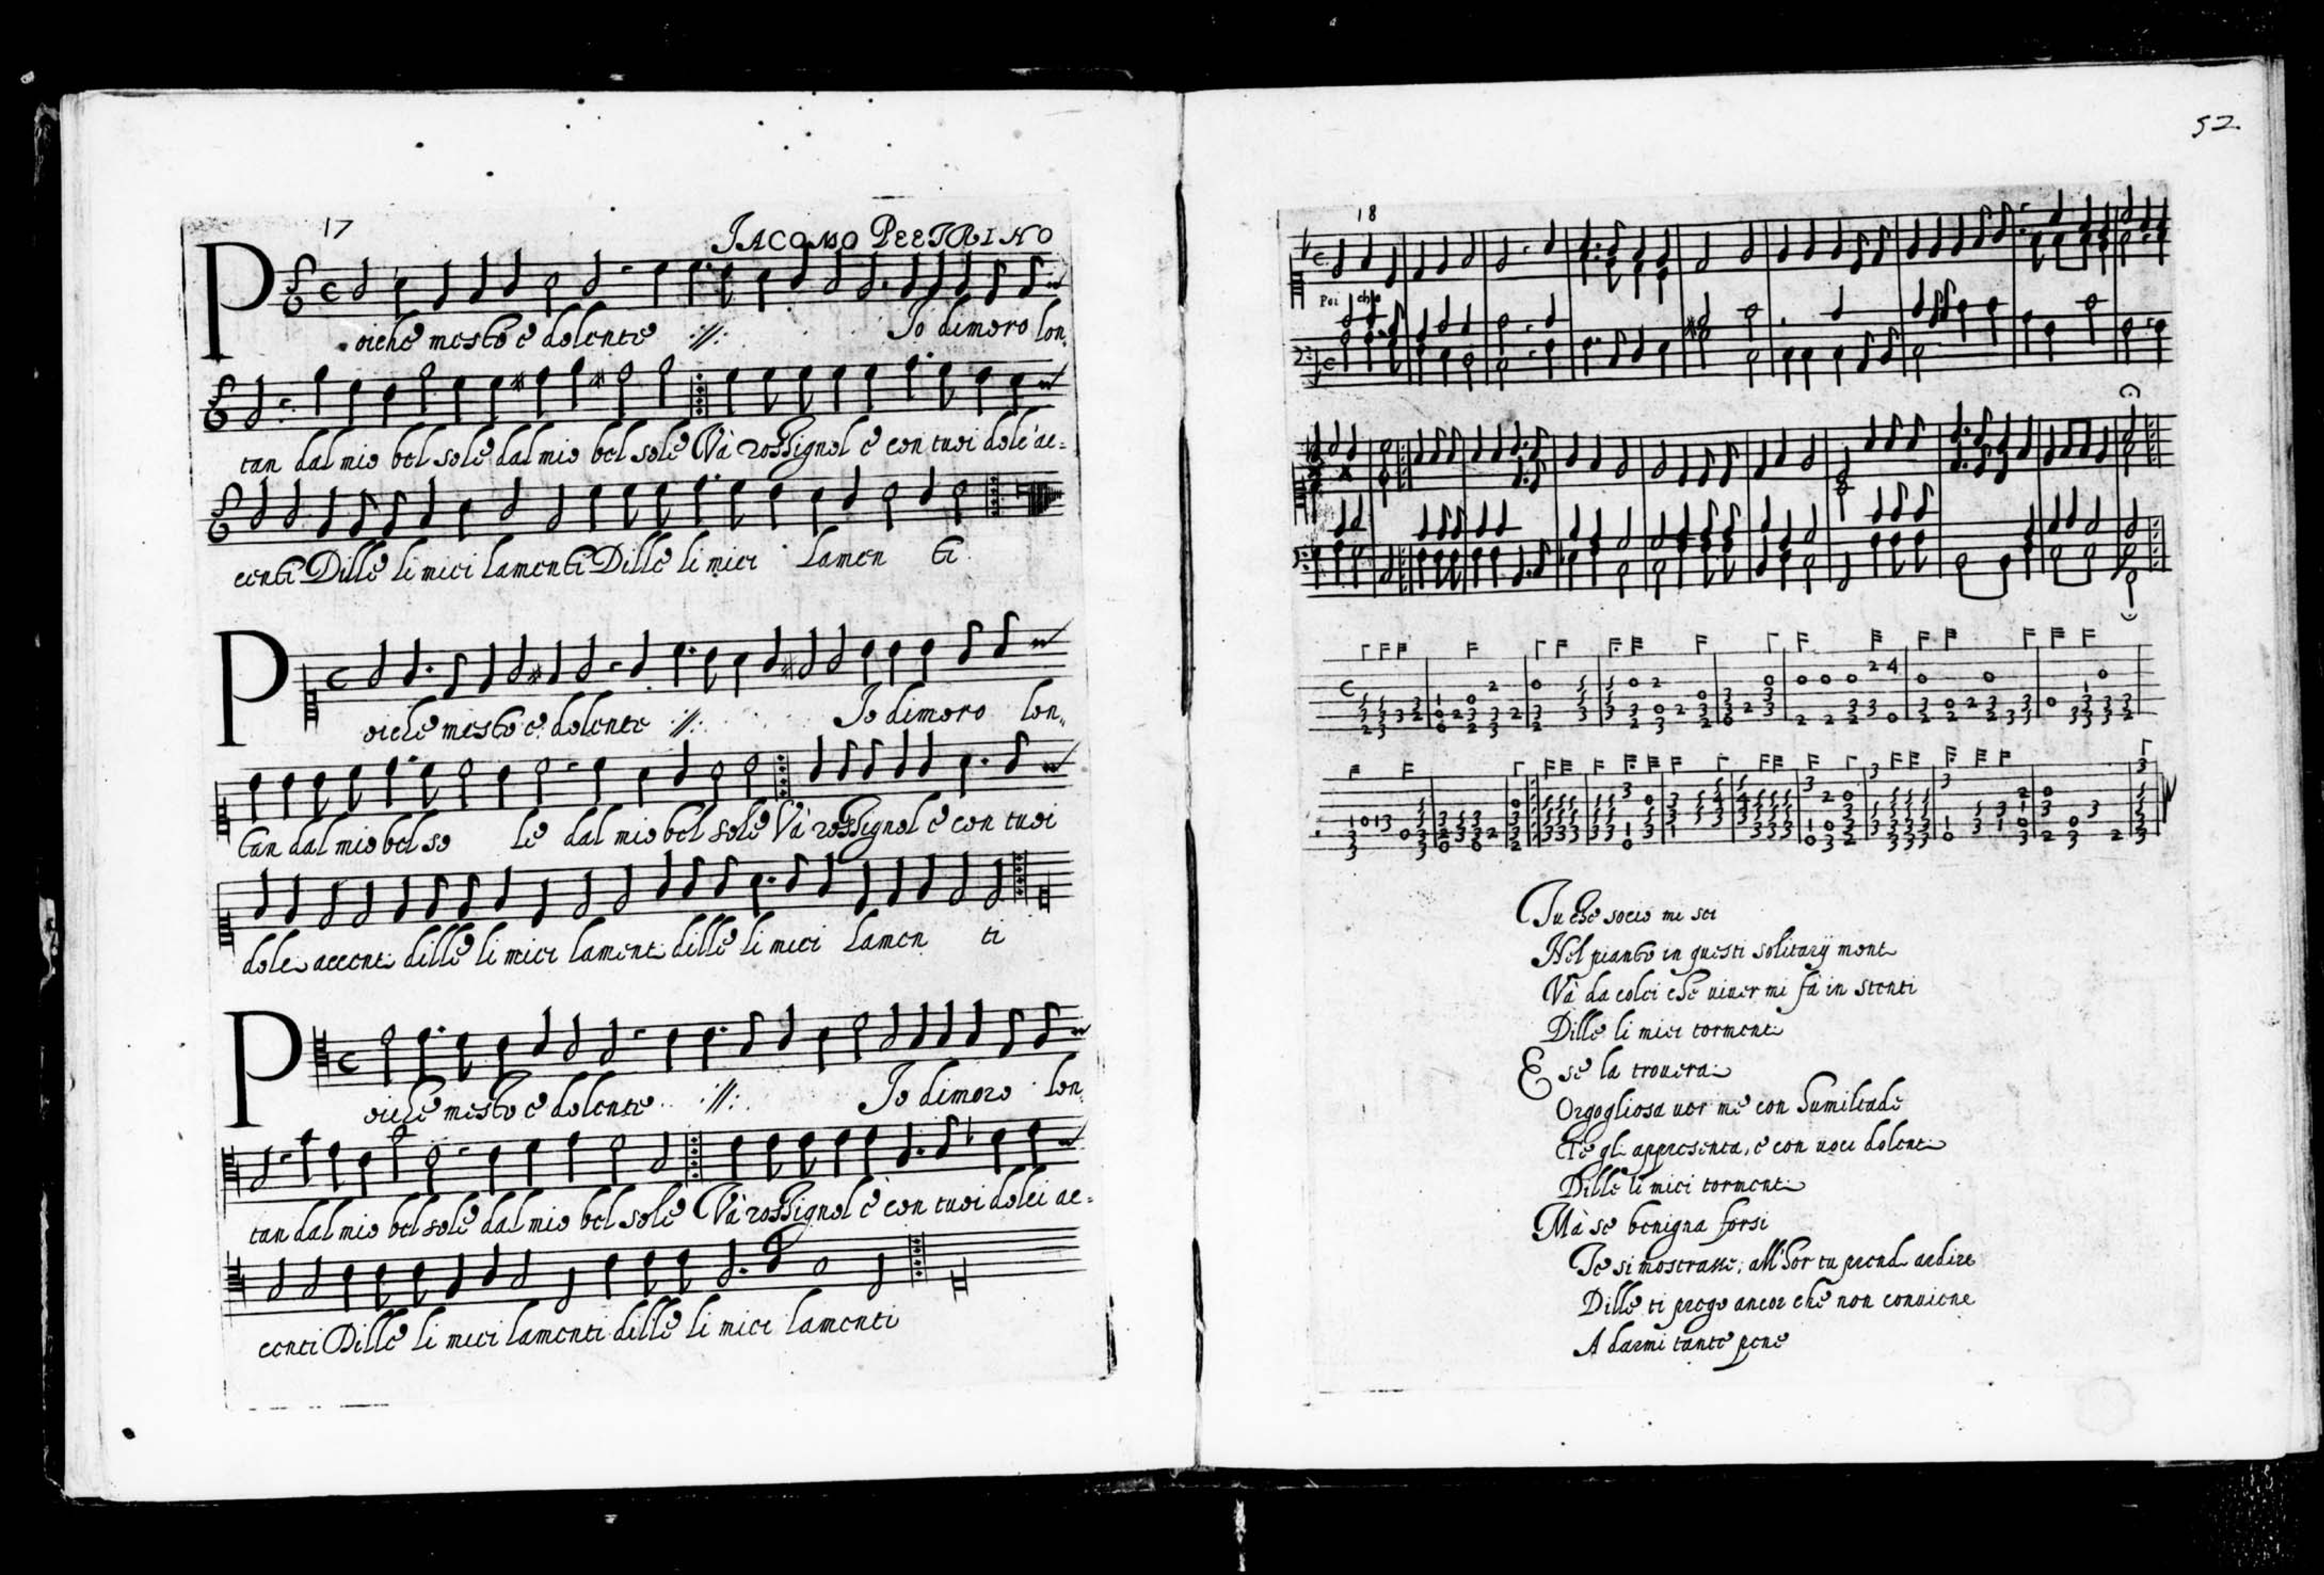 17
IACOMO PEETRINO
Poiche mesto e dolente :||: Io dimoro lon,
tan dal mio bel sole dal mio bel sole Và rossignol e con tuoi dolc'ac=
centi Dille li miei lamenti Dille li miei lamen ti
Poiche mesto e dolente :||: Io dimoro lon,
tan dal mio bel so le dal mio bel sole Và rossignol e con tuoi
dolci accenti dille li miei lamenti dille li miei lamen ti
Poiche mesto e dolente :||: Io dimoro lon,
tan dal mio bel sole dal mio bel sole Và rossignol è con tuoi dolci ac=
centi Dille li miei lamenti dille li miei lamenti
52
18
Poi che
Tu che socio mi sei
Nel pianto in questi solitarij monti
Và da colei che viver mi fà in stenti
Dille li miei tormenti
E se la troverai
Orgogliosa ver me con humiltade
Te gli appresenta, e con voci dolenti
Dille li miei tormenti
Mà se benigna forsi
Te si mostrasse, all'hor tu prendi ardire
Dille ti prego ancor che non conviene
A darmi tante pene